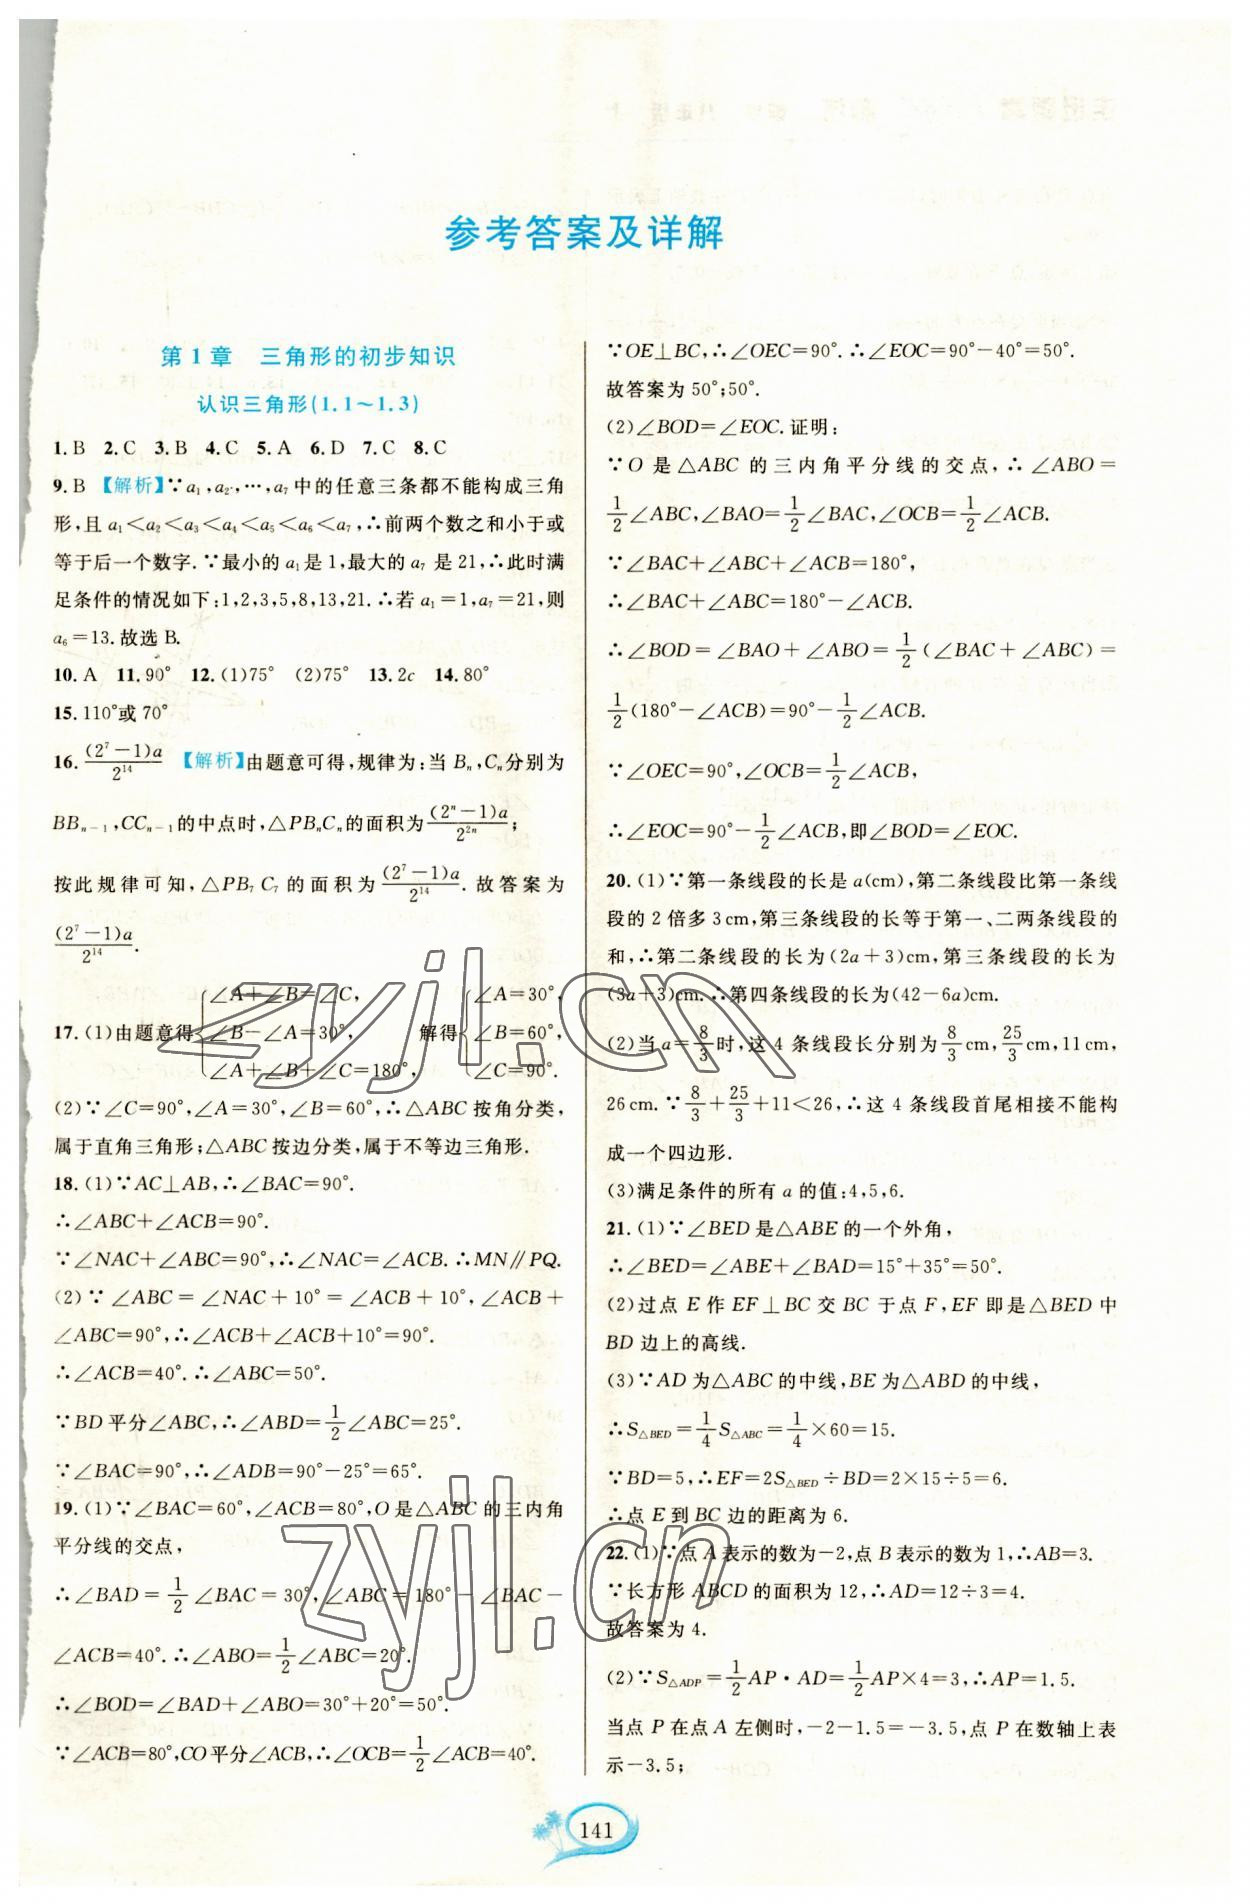 参考答案及详解
第1章 三角形的初步知识
认识三角形(1.1～1.3)
1.B 2.C 3.B 4.C 5.A 6.D 7.C 8.C
9.B 【解析】∵a₁,a₂,…,a₇中的任意三条都不能构成三角
形,且a₁<a₂<a₃<a₄<a₅<a₆<a₇,∴前两个数之和小于或
等于后一个数字.∵最小的a₁是1,最大的a₇是21,∴此时满
足条件的情况如下:1,2,3,5,8,13,21.∴若a₁=1,a₇=21,则
a₆=13.故选B.
10.A 11.90° 12.(1)75° (2)75° 13.2c 14.80°
15.110°或70°
16.(2⁷-1)a/2¹⁴ 【解析】由题意可得,规律为:当Bₙ,Cₙ分别为
BBₙ₋₁,CCₙ₋₁的中点时,△PBₙCₙ的面积为(2ⁿ-1)a/2²ⁿ;
按此规律可知,△PB₇C₇的面积为(2⁷-1)a/2¹⁴.故答案为
(2⁷-1)a/2¹⁴.
17.(1)由题意得{∠A+∠B=∠C, ∠B-∠A=30°, ∠A+∠B+∠C=180°, 解得{∠A=30°, ∠B=60°, ∠C=90°.
(2)∵∠C=90°,∠A=30°,∠B=60°,∴△ABC按角分类,
属于直角三角形;△ABC按边分类,属于不等边三角形.
18.(1)∵AC⊥AB,∴∠BAC=90°.
∴∠ABC+∠ACB=90°.
∵∠NAC+∠ABC=90°,∴∠NAC=∠ACB.∴MN∥PQ.
(2)∵∠ABC=∠NAC+10°=∠ACB+10°,∠ACB+
∠ABC=90°,∴∠ACB+∠ACB+10°=90°.
∴∠ACB=40°.∴∠ABC=50°.
∵BD平分∠ABC,∴∠ABD=1/2∠ABC=25°.
∵∠BAC=90°,∴∠ADB=90°-25°=65°.
19.(1)∵∠BAC=60°,∠ACB=80°,O是△ABC的三内角
平分线的交点,
∴∠BAD=1/2∠BAC=30°,∠ABC=180°-∠BAC-
∠ACB=40°.∴∠ABO=1/2∠ABC=20°.
∴∠BOD=∠BAD+∠ABO=30°+20°=50°.
∵∠ACB=80°,CO平分∠ACB,∴∠OCB=1/2∠ACB=40°.
∵OE⊥BC,∴∠OEC=90°.∴∠EOC=90°-40°=50°.
故答案为50°;50°.
(2)∠BOD=∠EOC.证明:
∵O是△ABC的三内角平分线的交点,∴∠ABO=
1/2∠ABC,∠BAO=1/2∠BAC,∠OCB=1/2∠ACB.
∵∠BAC+∠ABC+∠ACB=180°,
∴∠BAC+∠ABC=180°-∠ACB.
∴∠BOD=∠BAO+∠ABO=1/2(∠BAC+∠ABC)=
1/2(180°-∠ACB)=90°-1/2∠ACB.
∵∠OEC=90°,∠OCB=1/2∠ACB,
∴∠EOC=90°-1/2∠ACB,即∠BOD=∠EOC.
20.(1)∵第一条线段的长是a(cm),第二条线段比第一条线
段的2倍多3cm,第三条线段的长等于第一、二两条线段的
和,∴第二条线段的长为(2a+3)cm,第三条线段的长为
(3a+3)cm.∴第四条线段的长为(42-6a)cm.
(2)当a=8/3时,这4条线段长分别为8/3cm,25/3cm,11cm,
26cm.∵8/3+25/3+11<26,∴这4条线段首尾相接不能构
成一个四边形.
(3)满足条件的所有a的值:4,5,6.
21.(1)∵∠BED是△ABE的一个外角,
∴∠BED=∠ABE+∠BAD=15°+35°=50°.
(2)过点E作EF⊥BC交BC于点F,EF即是△BED中
BD边上的高线.
(3)∵AD为△ABC的中线,BE为△ABD的中线,
∴S△BED=1/4S△ABC=1/4×60=15.
∵BD=5,∴EF=2S△BED÷BD=2×15÷5=6.
∴点E到BC边的距离为6.
22.(1)∵点A表示的数为-2,点B表示的数为1,∴AB=3.
∵长方形ABCD的面积为12,∴AD=12÷3=4.
故答案为4.
(2)∵S△ADP=1/2AP·AD=1/2AP×4=3,∴AP=1.5.
当点P在点A左侧时,-2-1.5=-3.5,点P在数轴上表
示-3.5;
141
zyjl.cn
zyjl.cn